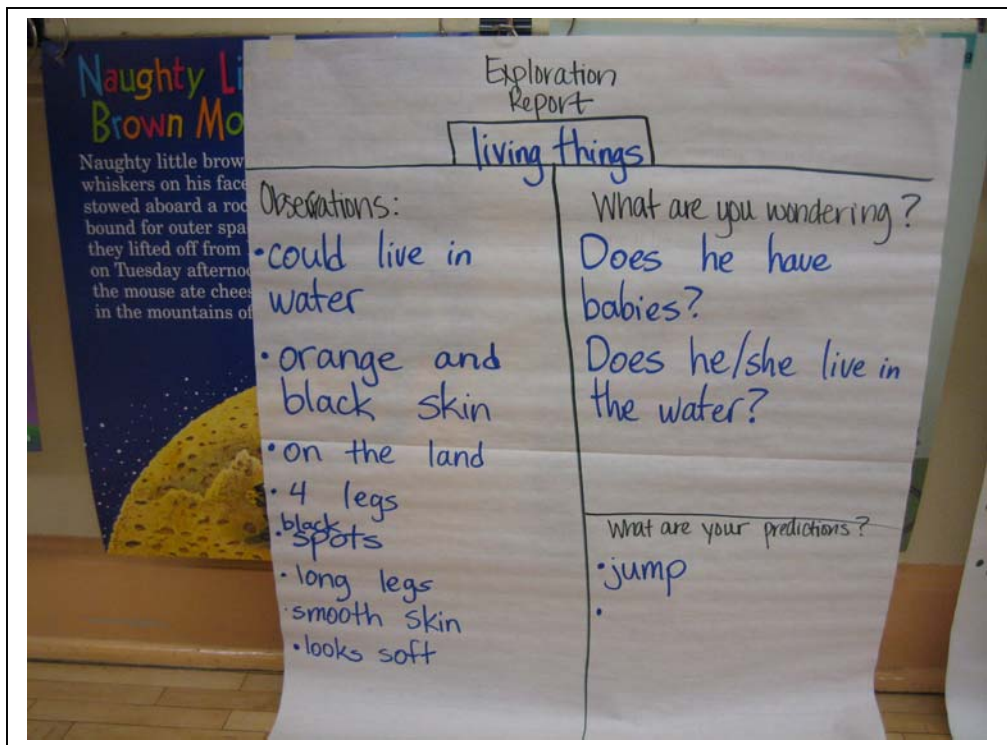 Naughty Li
Brown Mo
Naughty little brow
whiskers on his face
stowed aboard a roc
bound for outer spa
they lifted off from
on Tuesday afternoo
the mouse ate chees
in the mountains of
Exploration
Report
living things
Observations:
• could live in
water
• orange and
black skin
• on the land
• 4 legs
black
• spots
• long legs
• smooth skin
• looks soft
What are you wondering?
Does he have
babies?
Does he/she live in
the water?
What are your predictions?
• jump
•